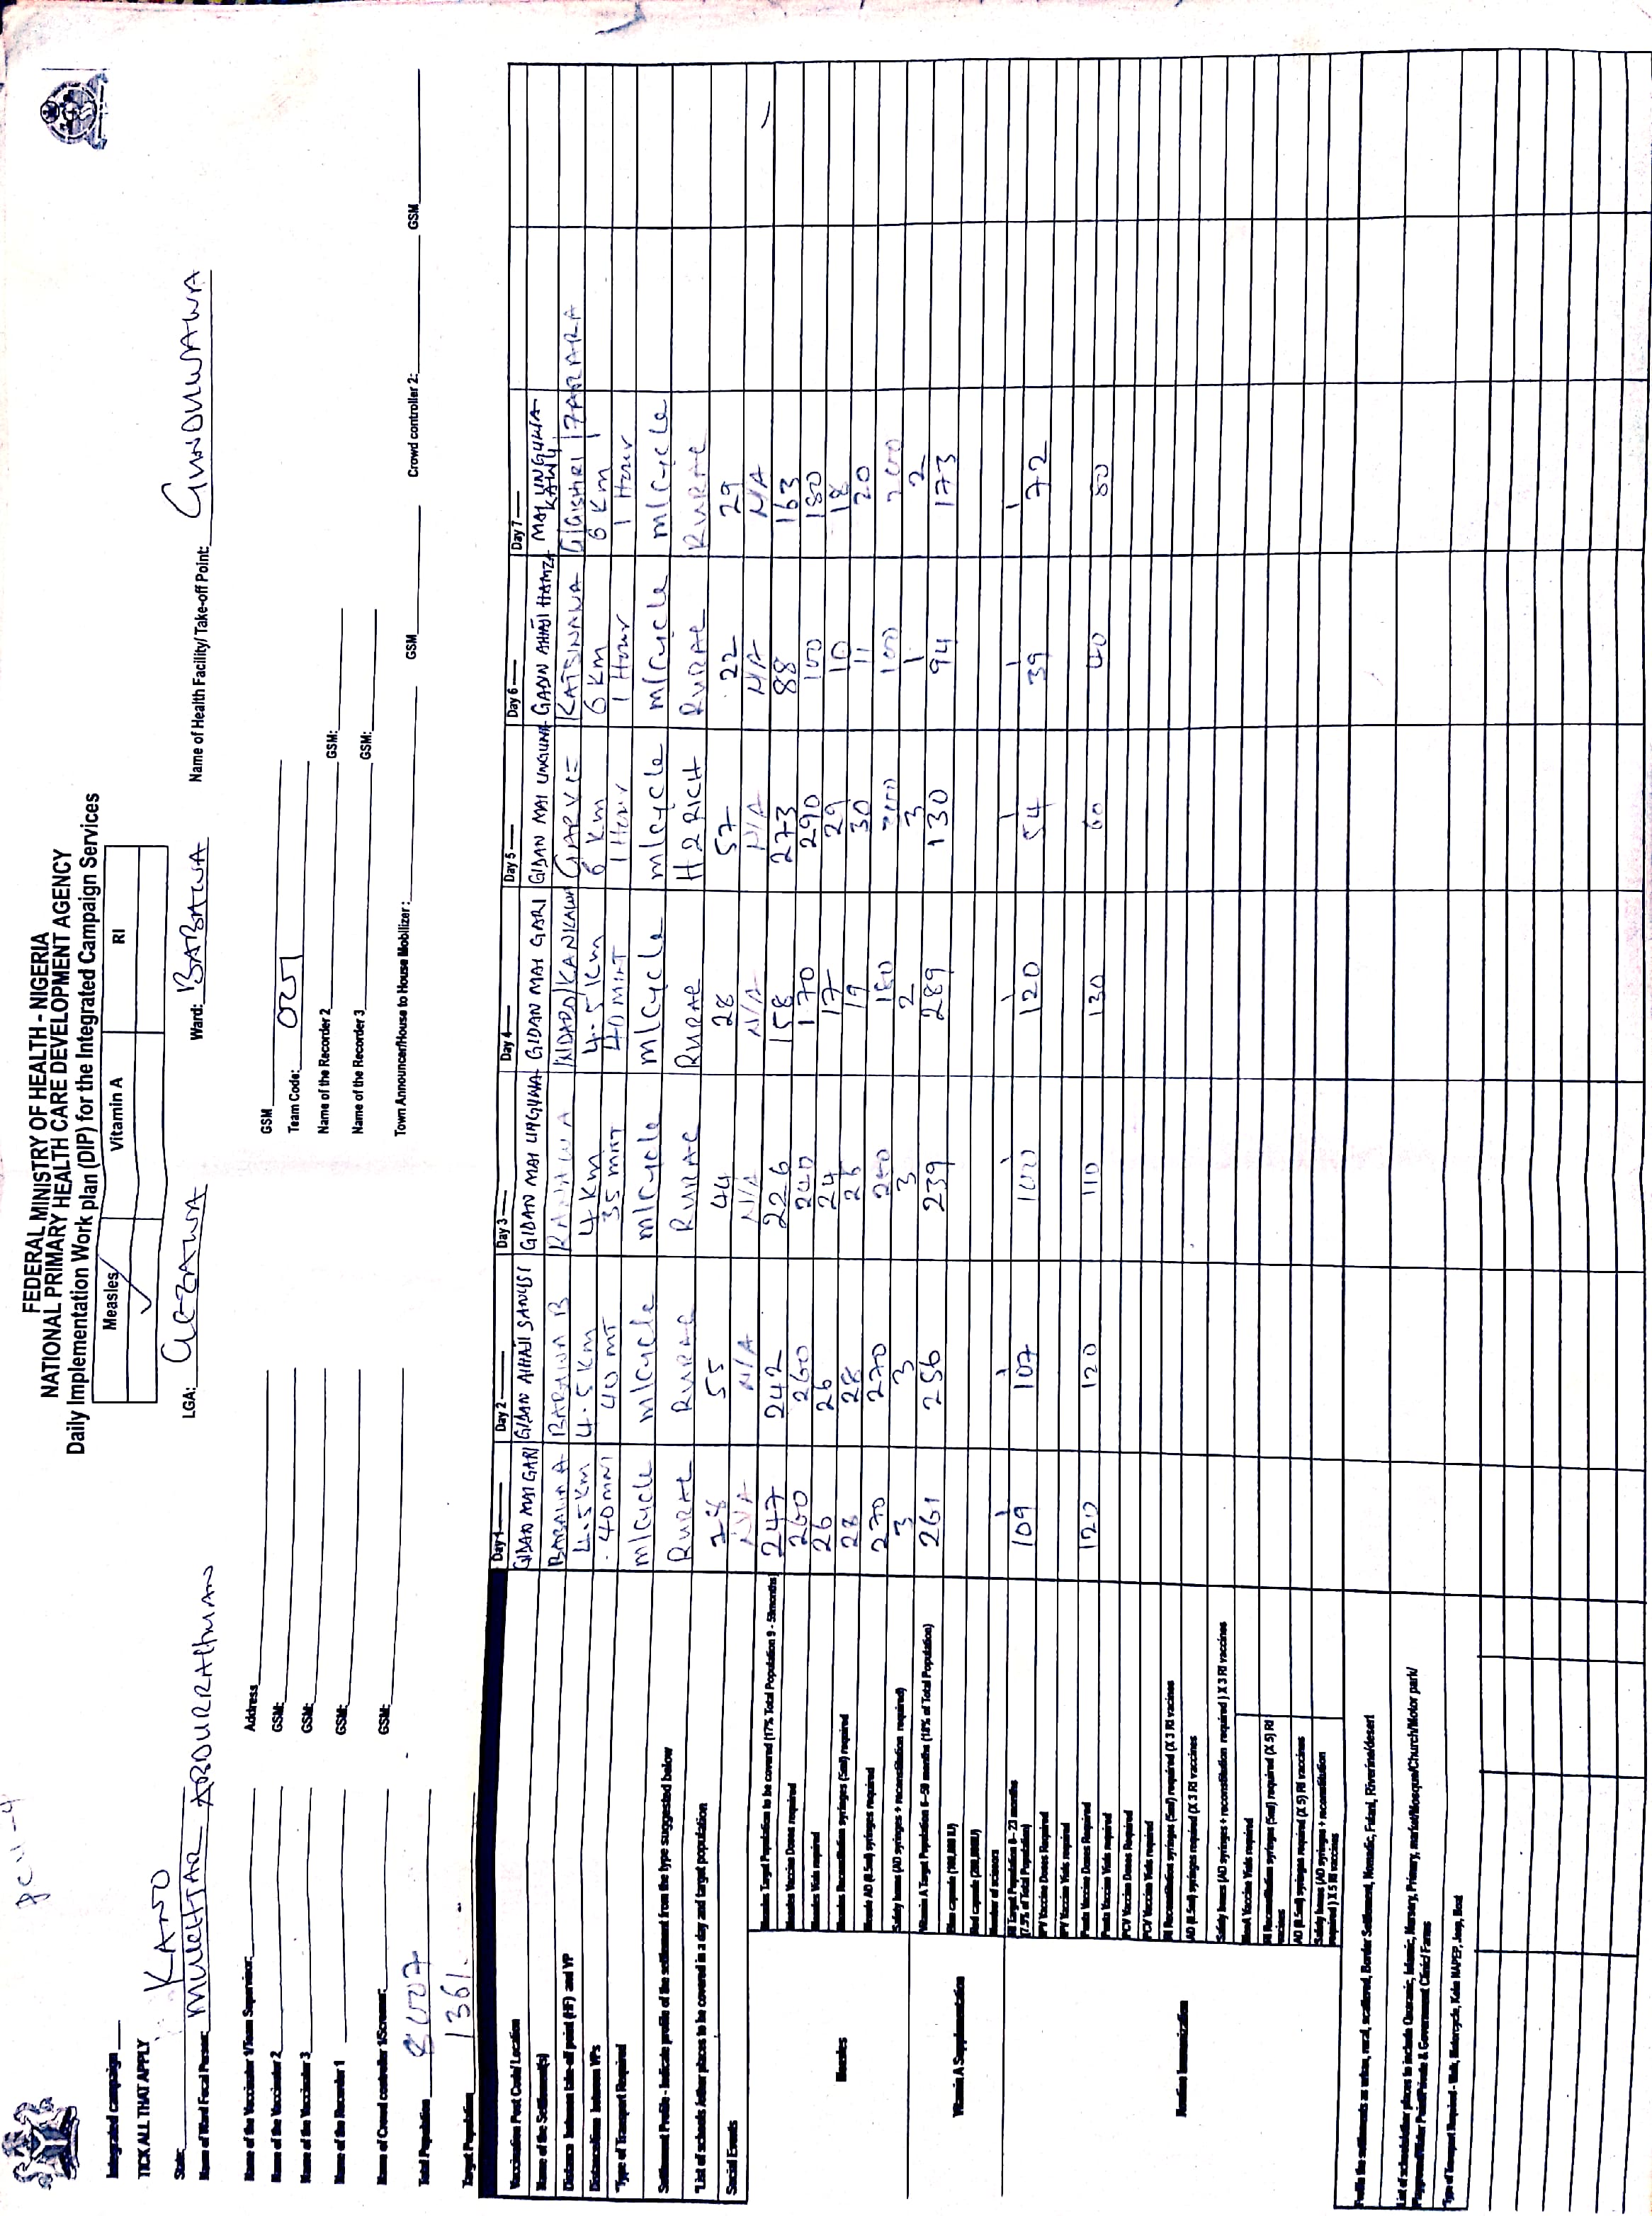 FEDERAL MINISTRY OF HEALTH - NIGERIA
NATIONAL PRIMARY HEALTH CARE DEVELOPMENT AGENCY
Daily Implementation Work plan (DIP) for the Integrated Campaign Services
Integrated campaign
TICK ALL THAT APPLY
Measles Vitamin A RI
✓
State: KANO
LGA: GEZAWA Ward: BABAWA Name of Health Facility/ Take-off Point: GUNDUWAWA
Name of Ward Focal Person: MUKHTAR ABDURRAHMAN
Name of the Vaccinator 1/Team Supervisor: Address GSM
Name of the Vaccinator 2 GSM: Team Code: 005
Name of the Vaccinator 3 GSM: Name of the Recorder 2 GSM:
Name of the Recorder 1 GSM: Name of the Recorder 3 GSM:
Name of Crowd controller 1/Screener: GSM: Town Announcer/House to House Mobilizer: GSM Crowd controller 2: GSM
Total Population 8007
Target Population 1361
Day 1 Day 2 Day 3 Day 4 Day 5 Day 6 Day 7
Vaccination Post Code/ Location GIDAN MAI GARI GIDAN ALHAJI SANUSI GIDAN MAI UNGUWA GIDAN MAI GARI GIDAN MAI UNGUWA GADIN ALHAJI HAMZA MAI UNGUWA
Name of the Settlement(s) BABAWA A BABAWA B KATSINAWA ZARARA
Distance between take-off point (HF) and VP 4.5Km 4.5Km 4Km 4.5Km 6Km 6Km 6Km
Distance/time between VPs 40MNT 40MT 35MNT 40MINT 1 Hour 1 Hour 1 Hour
*Type of Transport Required M/Cycle M/Cycle M/Cycle M/Cycle M/Cycle M/Cycle M/Cycle
Settlement Profile - Indicate profile of the settlement from the type suggested below RURAL RURAL RURAL RURAL RURAL RURAL
*List of schools /other places to be covered in a day and target population 55 44 28 57 22 29
Social Events N/A N/A N/A N/A N/A N/A N/A
Measles
Measles Target Population to be covered (17% Total Population 9 - 59months) 247 242 226 158 273 88 163
Measles Vaccine Doses required 260 260 240 170 290 100 180
Measles Vials required 26 26 24 17 29 10 18
Measles Reconstitution syringes (5ml) required 28 28 26 19 30 11 20
Measle AD (0.5ml) syringes required 270 270 240 180 100 200
Safety boxes (AD syringes + reconstitution required) 3 3 3 2 3 1 2
Vitamin A Supplementation
Vitamin A Target Population 6-59 months (18% of Total Population) 261 256 239 289 130 94 173
Blue capsule (100,000 IU)
Red capsule (200,000IU)
Number of scissors 1 1 1 1 1 1 1
Routine Immunization
RI Target Population 0- 23 months
(7.5% of Total Population) 109 107 100 120 54 39 72
IPV Vaccine Doses Required
IPV Vaccine Vials required
Penta Vaccine Doses Required 120 120 110 130 60 40 80
Penta Vaccine Vials required
PCV Vaccine Doses Required
PCV Vaccine Vials required
RI Reconstitution syringes (5ml) required (X 3 RI vaccines
AD (0.5ml) syringes required (X 3 RI vaccines
Safety boxes (AD syringes + reconstitution required ) X 3 RI vaccines
MenA Vaccine Vials required
RI Reconstitution syringes (5ml) required (X 5) RI
vaccines
AD (0.5ml) syringes required (X 5) RI vaccines
Safety boxes (AD syringes + reconstitution
required ) X 5 RI vaccines
Profile the settlements as urban, rural, scattered, Border Settlement, Nomadic, Fulani, Riverine/desert
List of schools/other places to include Quaranic, Islamic, Nursery, Primary, market/Mosque/Church/Motor park/
Playground/Water Point/Private & Government Clinic/ Farms
*Type of Transport Required - Walk, Motorcycle, Keke NAPEP, Jeep, Boat